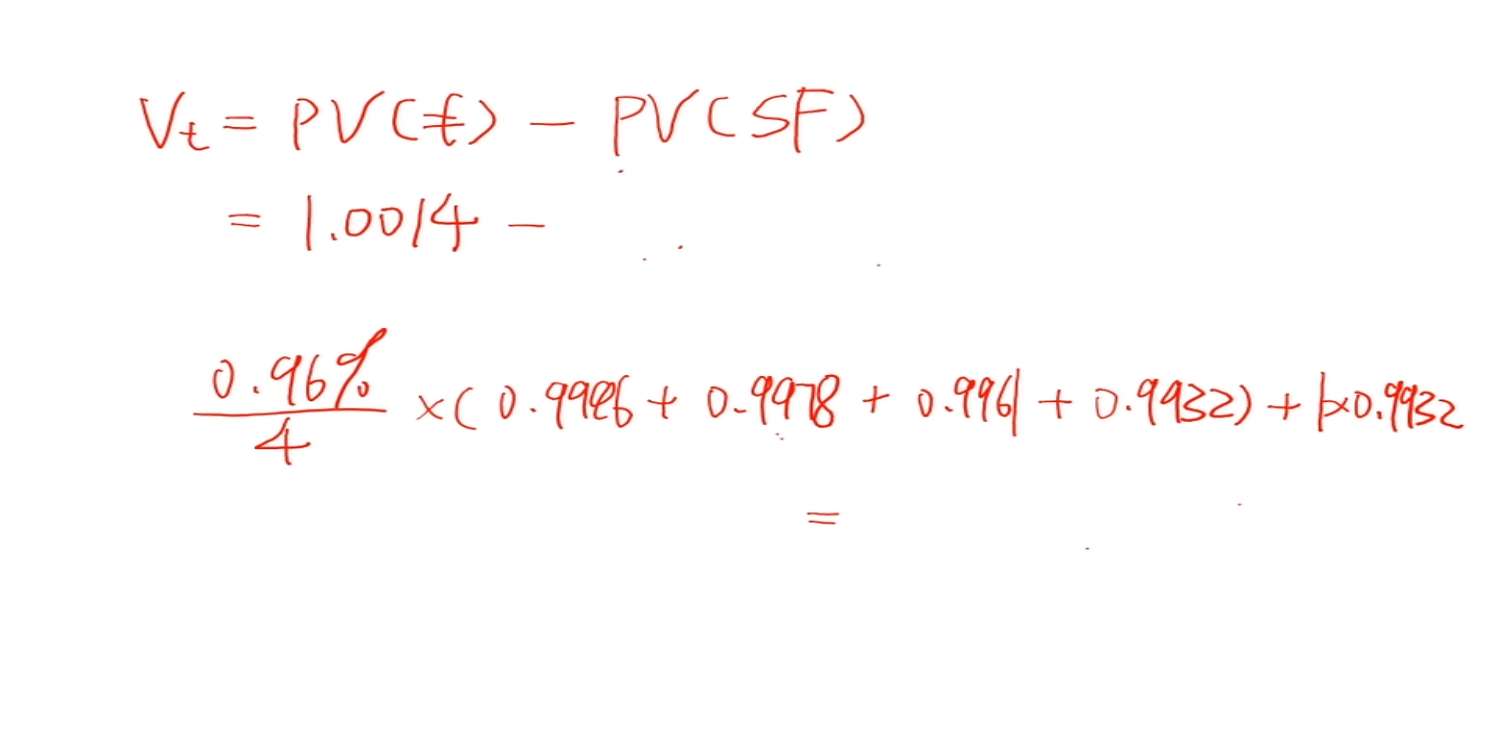 Vt = PV(£) − PV(SF)
= 1.0014 −
0.96% / 4 ×( 0.9986 + 0.9978 + 0.996 + 0.9932) + 1×0.9932
=